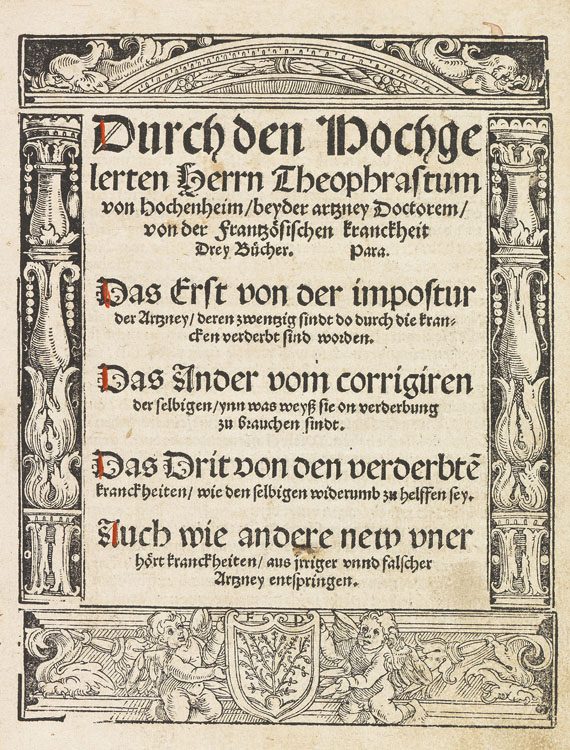 Durch den Hochge
lerten Herrn Theophrastum
von Hochenheim/beyder artzney Doctorem/
von der Frantzösischen kranckheit
Drey Bücher. Para.
Das Erst von der impostur
der Artzney/deren zwentzig sindt do durch die kran⸗
cken verderbt sind worden.
Das Ander vom corrigiren
der selbigen/ynn was weyß sie on verderbung
zu brauchen sindt.
Das Drit von den verderbtē
kranckheiten/wie den selbigen widerumb zu helffen sey.
Auch wie andere new vner
hört kranckheiten/aus jrriger vnnd falscher
Artzney entspringen.
F P